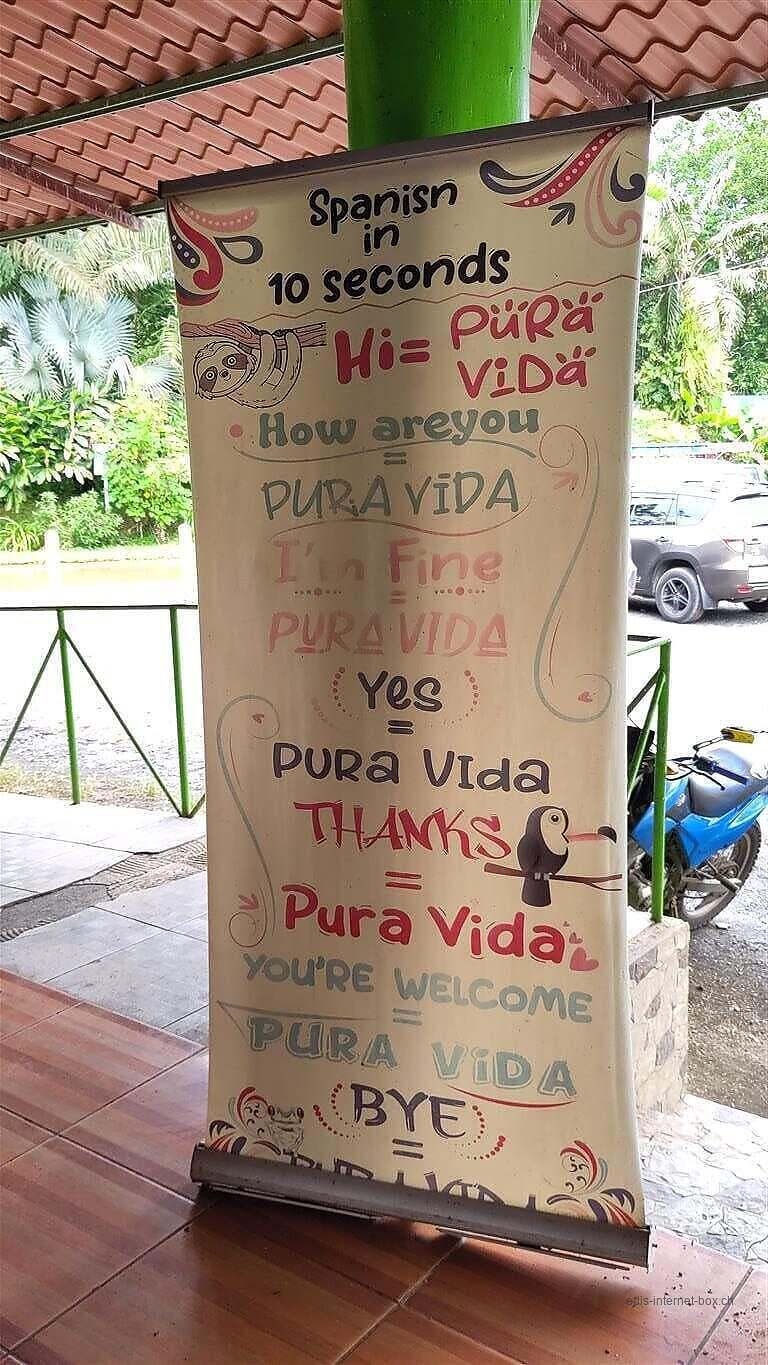 Spanish
in
10 seconds
Hi= PURA
VIDA
How areyou
=
PURA VIDA
I'm Fine
=
PURA VIDA
Yes
=
PURA VIda
THANKS
=
Pura Vida
YOU'RE WELCOME
=
PURA VIDA
BYE
=
PURA VIDA
eplis-internet-box.ch